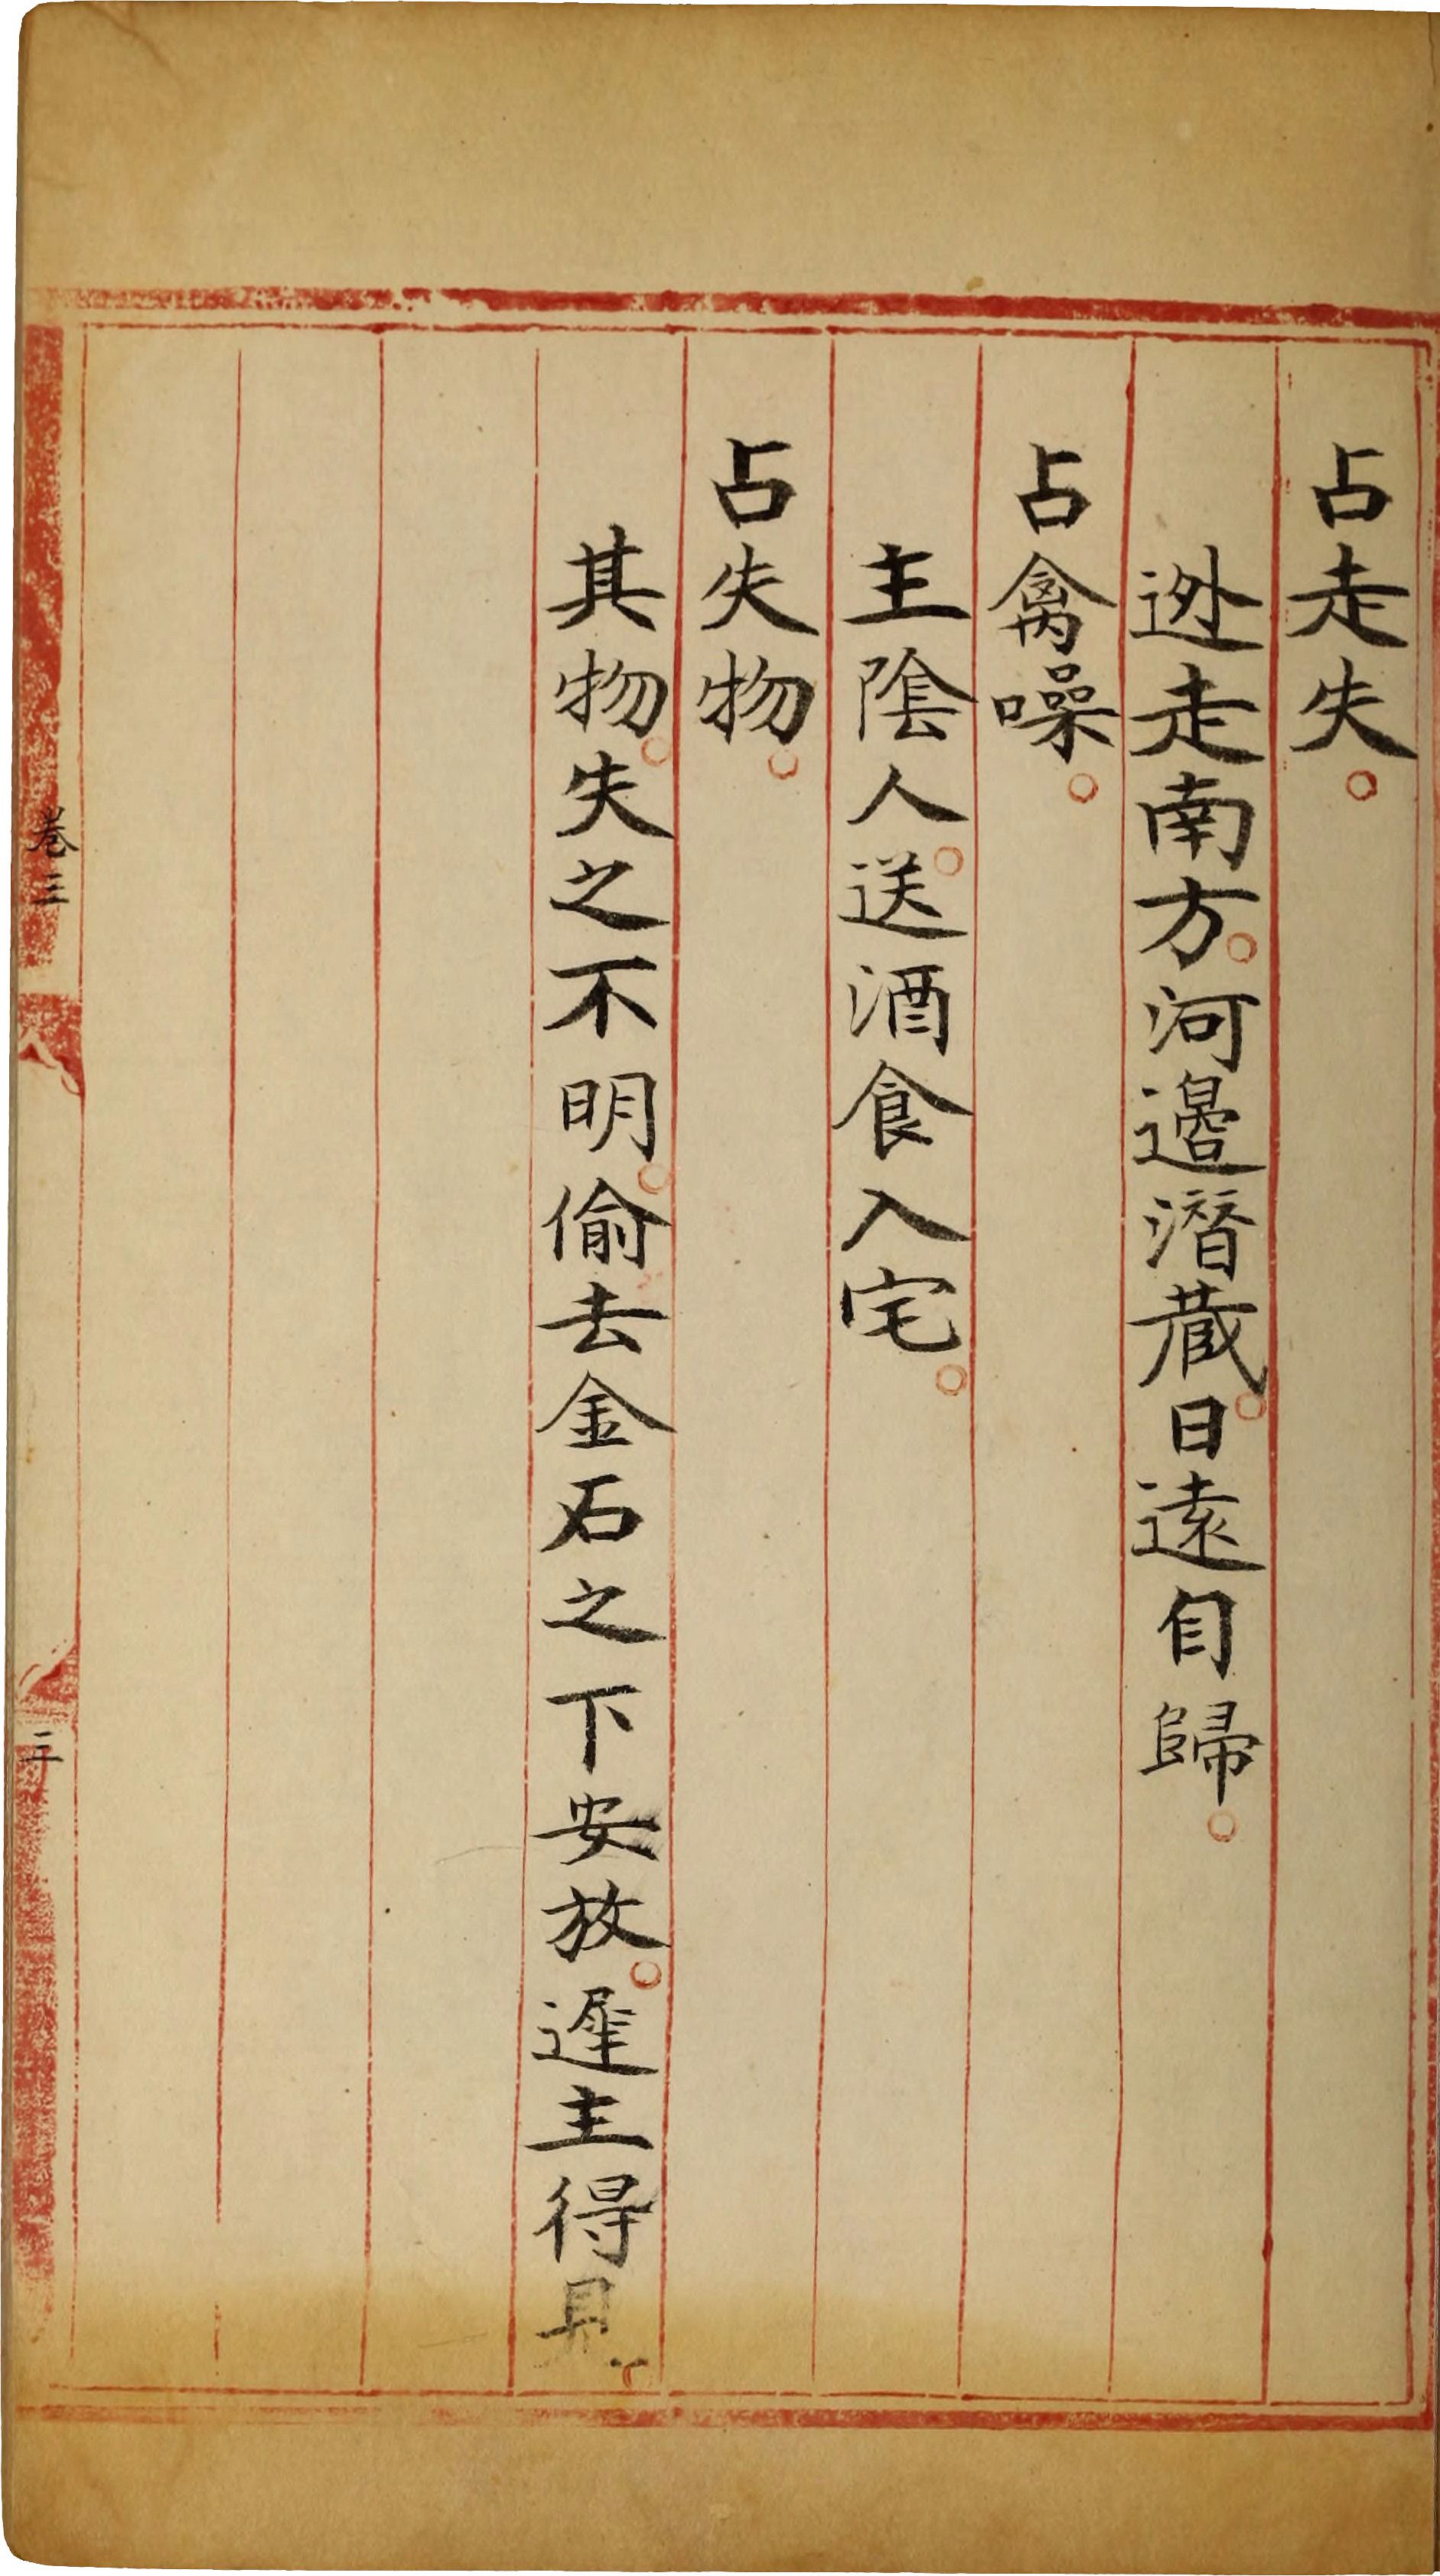 占走失。
迯走南方。河邉潜藏。日逺自歸。
占禽噪。
主陰人。送酒食入宅。
占失物。
其物。失之不明。偷去金石之下安放。遅主得見。
卷三
三